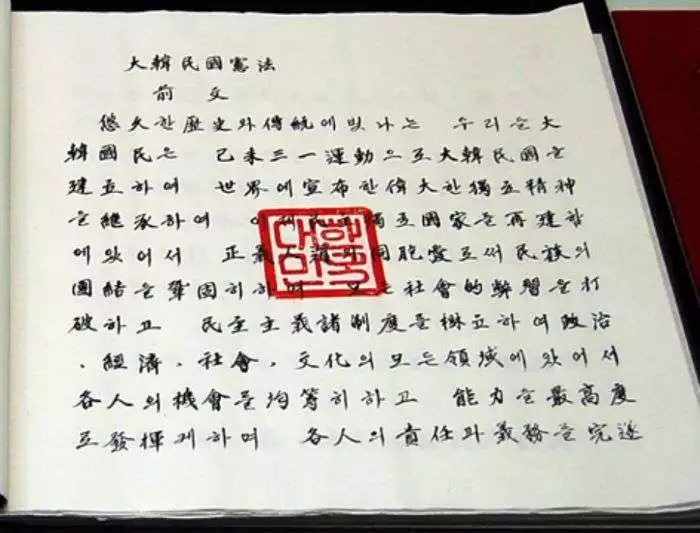 大韓民國憲法
前文
悠久한歷史와傳統에빛나는 우리들大
韓國民은 己未三一運動으로大韓民國을
建立하여 世界에宣布한偉大한獨立精神
을繼承하여 이제民主獨立國家를再建함
에있어서 正義人道와同胞愛로써民族의
團結을鞏固히하며 모든社會的弊習을打
破하고 民主主義諸制度를樹立하여政治
, 經濟, 社會, 文化의모든領域에있어서
各人의機會를均等히하고 能力을最高度
로發揮케하며 各人의責任과義務를完遂
대한민국